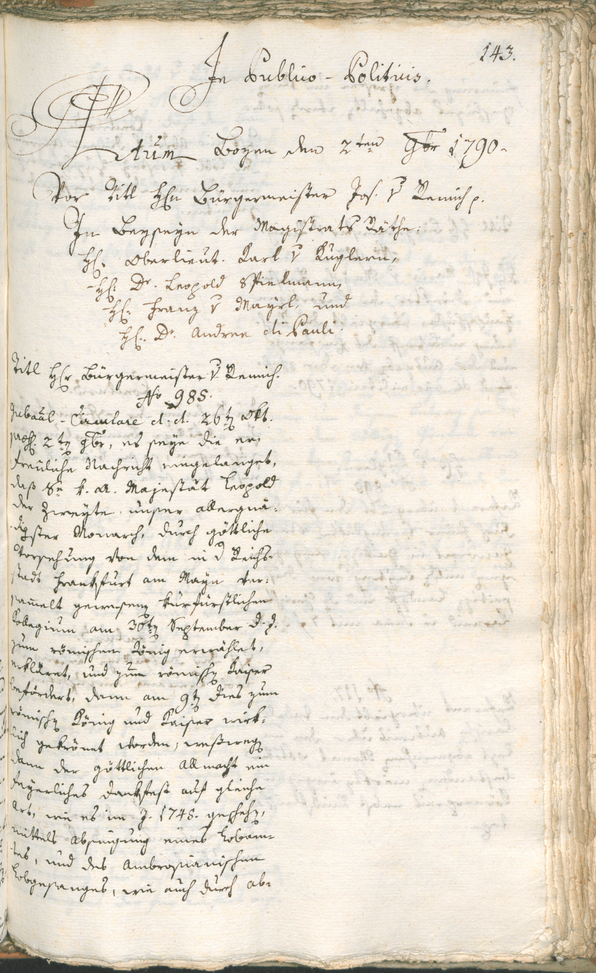 143.
In Publico-Politicis.
Actum Bozen den 2ten 9br 1790.
Vor Titl Hhn Bürgermeister Jos. v Remich p.
In Beyseyn der Magistrats Räthe:
Hh. Oberlieut. Karl v Kuglern,
Hh. Dr. Leopold Spielmann,
Hh. Franz v Mayrl, und
Hh. Dr. Andree di Pauli.
Titl Hhr Bürgermeister v Remich.
No 985.
Gubäal-Circulare d: d. 26ten Okt.
praes. 2ten 9br, es seye die er,
freuliche Nachricht eingelanget,
daß Se k. a. Majestät Leopold
der Zweyte unser allergnä,
digster Monarch, durch göttliche
Vorsehung von dem in d Reichs-
stadt Frankfurt am Mayn ver,
sammelt gewesenen kurfürstlichen
Kollegium am 30ten September d. J.
zum römischen König erwählet,
erkläret, und zum römischen Kaiser
befördert, dann am 9ten dies zum
römischen König und Kaiser wirk,
lich gekrönet worden, weßwegen
dann der göttlichen Allmacht ein
feyerliches Dankfest auf gleiche
Art, wie es im J. 1745. geschehen,
mittels Absingung eines Hoham-
tes, und des Ambrosianischen
Lobgesanges, wie auch durch ab-